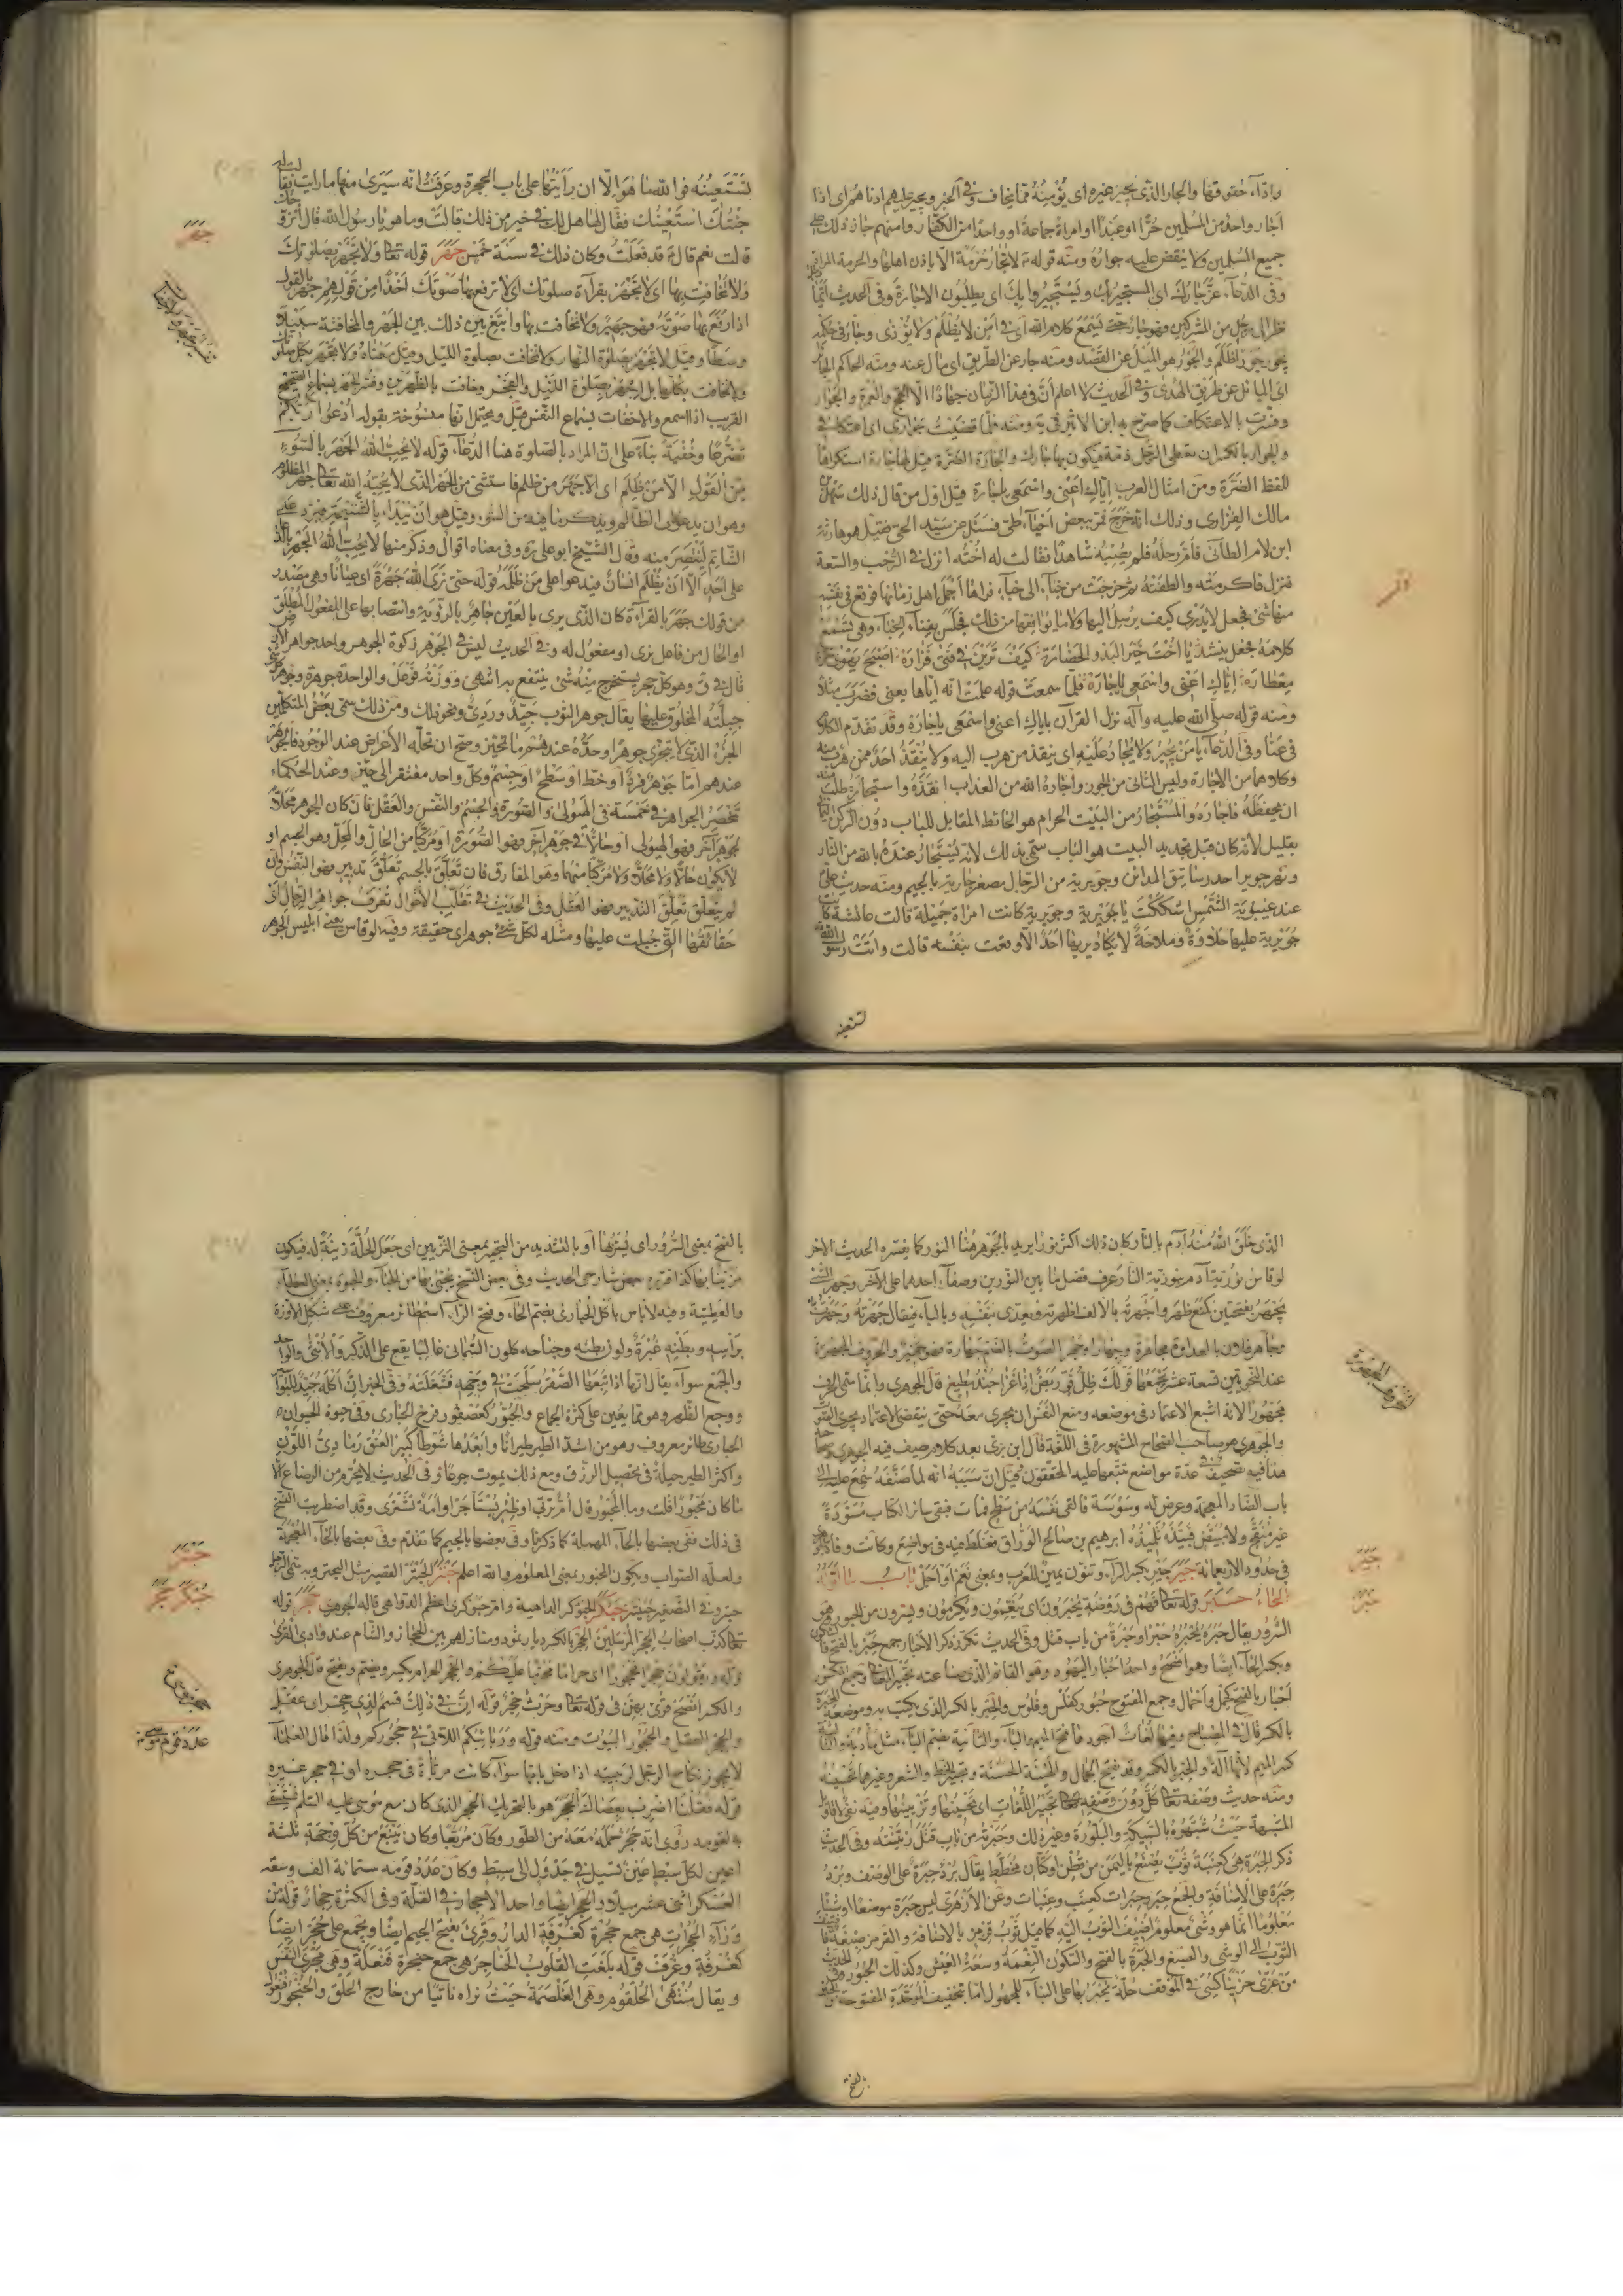 واذاء حقوقها والجار الذى يجير غيره اى يؤمنه مما يخاف وفى الخبر ويجير عليهم ادناهم اى اذا
اجار واحد من المسلمين حرا او عبدا او امراة جماعة او واحدا من الكفار وامنهم جاز ذلك على
جميع المسلمين ولا ينقض عليه جواره ومنه قوله لا تجار حرمة الا باذن اهلها والحرمة المراة
وفى الدعاء عز جارك اى المستجير بك ويستجيروا بك اى يطلبون الاجارة وفى الحديث ايما
نظر الى رجل من المشركين فهو جار حتى يسمع كلام الله اى فى امن لا يظلم ولا يؤذى وجار فى حكمه
يجور جورا ظلم والجور هو الميل عن القصد ومنه جار عن الطريق اى مال عنه ومنه الحاكم الجائر
اى المائل عن طريق الهدى وفى الحديث لا اعلم ان فى هذا الزمان جهادا الا الحج والعمرة والجوار
وفسرت بالاعتكاف كما صرح به ابن الاثير فى ية ومنه فلما قضيت جوارى اى اعتكافى
والجوار بالكسر ان تعطى الرجل ذمة فيكون بها جارك والجارة الضرة قيل لها جارة استكراها
للفظ الضرة ومن امثال العرب اياك اعنى واسمعى ياجارة قيل اول من قال ذلك سهل بن
مالك الفزارى وذلك انه خرج فمر ببعض احياء طى فسئل عن سيد الحى فقيل هو حارثة
ابن لام الطائى فام رحله فلم يصبه شاهدا فقالت له اخته انزل فى الرحب والسعة
فنزل فاكرمته والطفته ثم خرجت من خباء الى خباء فراها اجمل اهل زمانها فوقع فى نفسه
منها شئ فجعل لا يدرى كيف يرسل اليها ولا ما يوافقها من ذلك فجلس بفناء الخباء وهى تسمع
كلامه فجعل ينشد يا اخت خير البدو والحضارة كيف ترين فى فتى فزارة اصبح يهوى حرة
معطارة اياك اعنى واسمعى ياجارة فلما سمعت قوله علمت انه اياها يعنى فضرب مثلا
ومنه قوله صلى الله عليه وآله نزل القرآن باياك اعنى واسمعى ياجارة وقد تقدم الكلام
فى عنا وفى الدعاء يا من يجير ولا يجار عليه اى ينقذ من هرب اليه ولا ينقذ احد ممن هرب منه
وكلاهما من الاجارة وليس الثانى من الجور واجاره الله من العذاب انقذه واستجاره طلب منه
ان يحفظه فاجاره والمستجار من البيت الحرام هو الحائط المقابل للباب دون الركن اليمانى
بقليل لانه كان قبل تجديد البيت هو الباب سمى بذلك لانه يستجار عنده بالله من النار
ونهر جوير احد رساتيق المدائن وجويرية من الرجال مصغر جارية بالجيم ومنه حديث على
عند غيبوبة الشمس اشككت يا جويرية وجويرية كانت امراة جميلة قالت عائشة كانت
جويرية عليها حلاوة وملاحة لا يكاد يريها احد الا وقعت بنفسه قالت واتت رسول الله
تستعينه
جهر
تفسير الجهر والاخفات
تستعينه فوالله ما هو الا ان رأيتها على باب الحجرة وعرفت انه سيرى منها ما رايت فقالت
جئتك استعينك فقال لها هل لك فى خير من ذلك قالت وما هو يارسول الله قال اتزوجك
قالت نعم قال قد فعلت وكان ذلك فى سنة خمس جهر قوله تعا ولا تجهر بصلوتك
ولا تخافت بها اى لا تجهر بقراءة صلوتك اى لا ترفع بها صوتك اخذا من قولهم جهر بالقول
اذا رفع بها صوته فهو جهير ولا تخافت بها وابتغ بين ذلك بين الجهر والمخافتة سبيلا
وسطا وقيل لا تجهر بصلوة النهار ولا تخافت بصلوة الليل وقيل معناه ولا تجهر بكل صلوتك
ولا تخافت بكلها بل اجهر بصلوة الليل والفجر وخافت بالظهرين وفسر الجهر بسماع الصحيح
القريب اذا استمع والاخفات بسماع النفس قيل ويحتمل انها منسوخة بقوله ادعوا ربكم
تضرعا وخفية بناء على ان المراد بالصلوة هنا الدعاء قوله لا يحب الله الجهر بالسوء
من القول الا من ظلم اى الا جهر من ظلم فاستثنى من الجهر الذى لا يحبه الله تعا جهر المظلوم
وهو ان يدعو على الظالم ويذكره بما فيه من السوء وقيل هو ان يبدا بالشتيمة فيرد على
الشاتم لينتصر منه وقال الشيخ ابو على ره وفى معناه اقوال وذكر منها لا يحب الله الجهر بالدعاء
على احد الا ان يظلم انسان فيدعوا على من ظلمه قوله حتى نرى الله جهرة اى عيانا وهى مصدر
من قولك جهر بالقراءة كان الذى يرى بالعين جاهر بالرؤية وانتصابها على المفعول المطلق
او الحال من فاعل نرى او مفعول له وفى الحديث ليس فى الجوهر زكوة الجوهر واحد جواهر الارض
قال فى ق وهو كل حجر يستخرج منه شئ ينتفع به انتهى ووزنه فوعل والواحدة جوهرة وجوهر كل شئ
جبلته المخلوق عليها يقال جوهر الثوب جيد وردى ونحو ذلك ومن ذلك سمى بعض المتكلمين
الجزء الذى لا يتجزى جوهرا وحده عندهم ما تحيز وصح ان تحله الاعراض عند الوجود فالجوهر
عندهم اما جوهر فرد او خط او سطح او جسم وكل واحد مفتقر الى حيز وعند الحكماء
تنحصر الجواهر فى خمسة فى الهيولى والصورة والجسم والنفس والعقل فان كان الجوهر محلا
لجوهر آخر فهو الهيولى او حالا فى جوهر آخر فهو الصورة او مركبا من الحال والمحل وهو الجسم او
لا يكون حالا ولا محلا ولا مركبا منهما وهو المفارق فان تعلق بالجسم تعلق تدبير فهو النفس وان
لم يتعلق تعلق التدبير فهو العقل وفى الحديث فى تقلب الاحوال تعرف جواهر الرجال اى
حقائقها التى جبلت عليها ومثله لكل شئ جوهر اى حقيقة وفيه لو قاس يعنى ابليس الجوهر
الذى خلق الله منه آدم بالنار كان ذلك اكثر نورا يريد بالجوهر هنا النور كما يفسره الحديث الاخر
لو قاس نورية آدم بنورية النار عرف فضل ما بين النورين وصفاء احدهما على الآخر وجهر الشئ
يجهر بفتحتين كمنع ظهر واجهرته بالالف اظهرته ويعدى بنفسه وبالباء فيقال جهرته وجهرت به
وجاهر فلان بالعداوة مجاهرة وجهارا وجهر الصوت بالضم جهارة فهو جهير والحروف المجهورة
عند النحويين تسعة عشر يجمعها قولك ظل قو ربض اذ غزا جند مطيع قال الجوهرى وانما سمى الحرف
مجهورا لانه اشبع الاعتماد فى موضعه ومنع النفس ان يجرى معه حتى ينقضى الاعتماد بجرى الصوت
والجوهرى هو صاحب الصحاح المشهورة فى اللغة قال ابن برى بعد كلام يصف فيه الجوهرى
هذا فيه تصحيف فى عدة مواضع تتبعها عليه المحققون قيل ان سببه انه لما صنفه سمع عليه الى
باب الضاد المعجمة وعرض له وسوسة فالقى نفسه من سطح فمات فبقى سائر الكتاب مسودة
غير منقح ولا مبيض فبيضه تلميذه ابرهيم بن صالح الوراق فغلط فيه فى مواضع وكانت وفاته
فى حدود الاربعمائة جير جير بكسر الراء وتنون يمين للعرب ومعنى نعم او اجل باب ما اوله
الحاء حبر قوله تعا فهم فى روضة يحبرون اى ينعمون ويكرمون ويسرون من الحبور وهو
السرور يقال حبره يحبره حبرا وحبرة من باب قتل وفى الحديث تكرر ذكر الاحبار جمع حبر بالفتح
وبكسر الحاء ايضا وهو افصح واحد احبار اليهود وهو العالم الذى صناعته تحبير المعانى وجمع المكسور
احبار بالفتح كحمل واحمال وجمع المفتوح حبور كفلس وفلوس والحبر بالكسر الذى يكتب به وموضعه المحبرة
بالكسر قال فى المصباح وفيها لغات اجود فافتح الميم والباء والثانية بضم الباء مثل مأدبة والثالثة
كسر الميم لانها آلة والحبر بالكسر وقد يفتح الجمال والهيئة الحسنة وتحبير الخط والشعر وغيرهما تحسينه
ومنه حديث وصفه تعا كل دون وصفه تحبير اللغات اى تحسينها وتزيينها وفيه نفى لاقاويل
المشبهة حيث شبهوه بالسبيكة والبلورة وغير ذلك وحبرته من باب قتل زينته وفى الحديث
ذكر الحبرة هى كعنبة ثوب يصنع باليمن من قطن او كتان مخطط يقال برد حبرة على الوصف وبرد
حبرة على الاضافة والجمع حبر وحبرات كعنب وعنبات وعن الازهرى ليس حبرة موضعا او شيئا
معلوما انما هو وشى معلوم اضيف الثوب اليه كما قيل ثوب قرمز بالاضافة والقرمز صبغة
الثوب الى الوشى والصبغ والحبرة بالفتح والسكون النعمة وسعة العيش وكذلك الحبور وفى الحديث
من عزى حزينا كسى فى الموقف حلة يحبر بها على البناء للمجهول اما بتخفيف الموحدة المفتوحة
بالفتح
تفسير الجوهرة
جير
حبر
بالفتح بمعنى السرور اى يسر بها او بالتشديد من التحبير بمعنى التزيين اى جعل الحلة زينة له فيكون
مزينا بها كذا قرره بعض شارحى الحديث وفى بعض النسخ يحبى بها من الحباء والحبوة بمعنى العطاء
والعطية وفيه لا باس باكل الحبارى بضم الحاء وفتح الراء اسم طائر معروف على شكل الاوزة
براسه وبطنه غبرة ولون بطنه وجناحه كلون السمانى غالبا يقع على الذكر والانثى والواحد
والجمع سواء يقال انها اذا تبعها الصقر سلحت فى وجهه فشغلته وفى الخبر ان اكله جيد للبواسير
ووجع الظهر وهو مما يعين على كثرة الجماع والحبور كعصفور فرخ الحبارى وفى حيوة الحيوان
الحبارى طائر معروف وهو من اشد الطير طيرانا وابعدها شوطا كبير العنق رمادى اللون
واكثر الطير حيلة فى تحصيل الرزق ومع ذلك يموت جوعا وفى الحديث لا يحرم من الرضاع الا
ما كان مخبورا قلت وما المخبور قال ام تربى او ظئر تستأجر او امة تشترى وقد اضطربت النسخ
فى ذلك ففى بعضها بالحاء المهملة كما ذكرنا وفى بعضها بالجيم كما تقدم وفى بعضها بالخاء المعجمة
ولعله الصواب ويكون المخبور بمعنى المعلوم والله اعلم حبتر الحبتر القصير مثل البحتر وبه سمى الرجل
حبتر وفى التصغير حبيتر حبكر الحبوكر الداهية وام حبوكرى اعظم الدواهى قاله الجوهرى حجر قوله
تعا كذب اصحاب الحجر المرسلين الحجر بالكسر ديار ثمود ومنازلهم بين الحجاز والشام عند وادى القرى
قوله ويقولون حجرا محجورا اى حراما محرما عليكم والحجر الحرام يكسر ويضم ويفتح قال الجوهرى
والكسر افصح وقرئ بهن فى قوله تعا وحرث حجر قوله ان فى ذلك قسم لذى حجر اى عقل
والحجر العقل والحجور البيوت ومنه قوله وربائبكم اللاتى فى حجوركم ولذا قال العلماء
لا يجوز نكاح الرجل لربيبته اذا دخل بامها سواء كانت مرباة فى حجره او فى حجر غيره
قوله فقلنا اضرب بعصاك الحجر هو بالتحريك الحجر الذى كان مع موسى عليه السلم
به لقومه روى انه حجر حمله معه من الطور وكان مربعا وكان ينبع من كل وجهة ثلثة
اعين لكل سبط عين تسيل فى جدول الى سبط وكان عدد قومه ستمائة الف وسعة
العسكر اثنى عشر ميلا والحجر ايضا واحد الاحجار فى القلة وفى الكثرة حجار قوله من
وراء الحجرات هى جمع حجرة كغرفة الدار وقرئ بفتح الجيم ايضا ويجمع على حجر ايضا
كغرفة وغرف قوله بلغت القلوب الحناجر هى جمع حنجرة فنعلة وهى مجرى النفس
ويقال منتهى الحلقوم وهى الغلصمة حيث تراه ناتيا من خارج الحلق والحنجور فنعول
حبتر
حبكر حجر
عدد قوم موسى